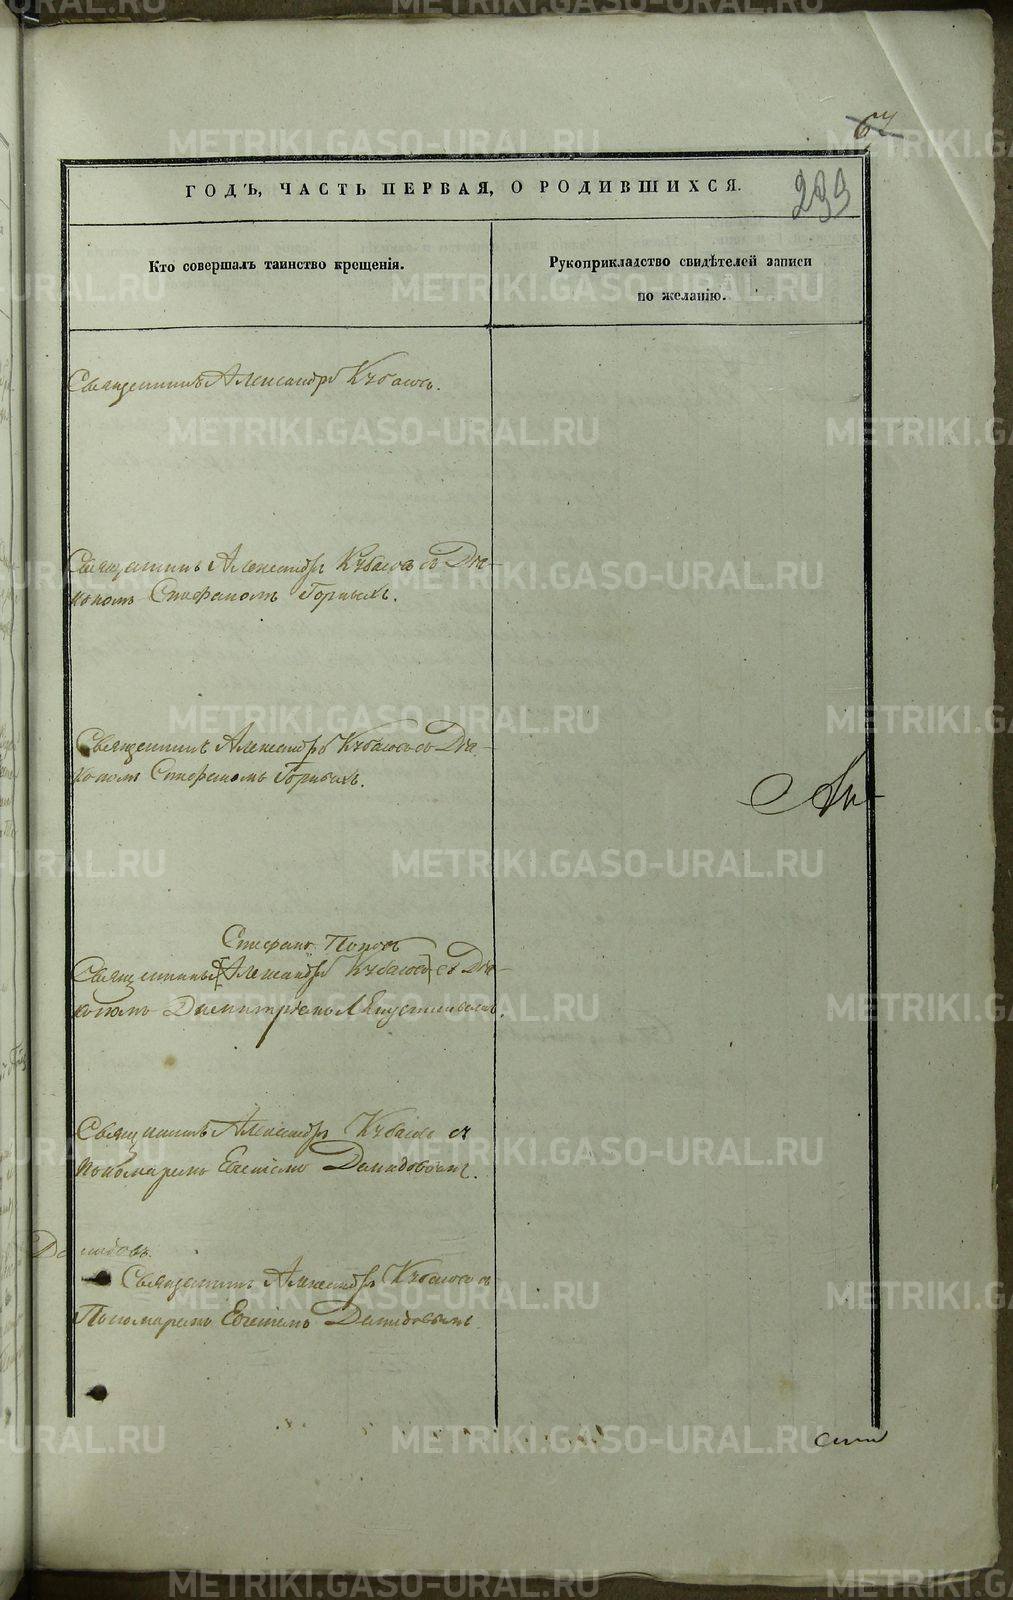 233
ГОДЪ, ЧАСТЬ ПЕРВАЯ, О РОДИВШИХСЯ.
Кто совершалъ таинство крещенія.
Рукоприкладство свидѣтелей записи
по желанію.
Священникъ Александръ Кубасовъ.
Священникъ Александръ Кубасовъ съ Діа-
кономъ Стефаномъ Горныхъ.
Священникъ Александръ Кубасовъ съ Діа-
кономъ Стефаномъ Горныхъ.
Стефанъ Поповъ
Священникъ [Александръ Кубасовъ] съ Діа-
кономъ Димитріемъ
Священникъ Александръ Кубасовъ съ
пономаремъ Евгеніемъ Демидовымъ.
Демидовъ.
Священникъ Александръ Кубасовъ съ
Пономаремъ Евгеніемъ Демидовымъ.
METRIKI.GASO-URAL.RU